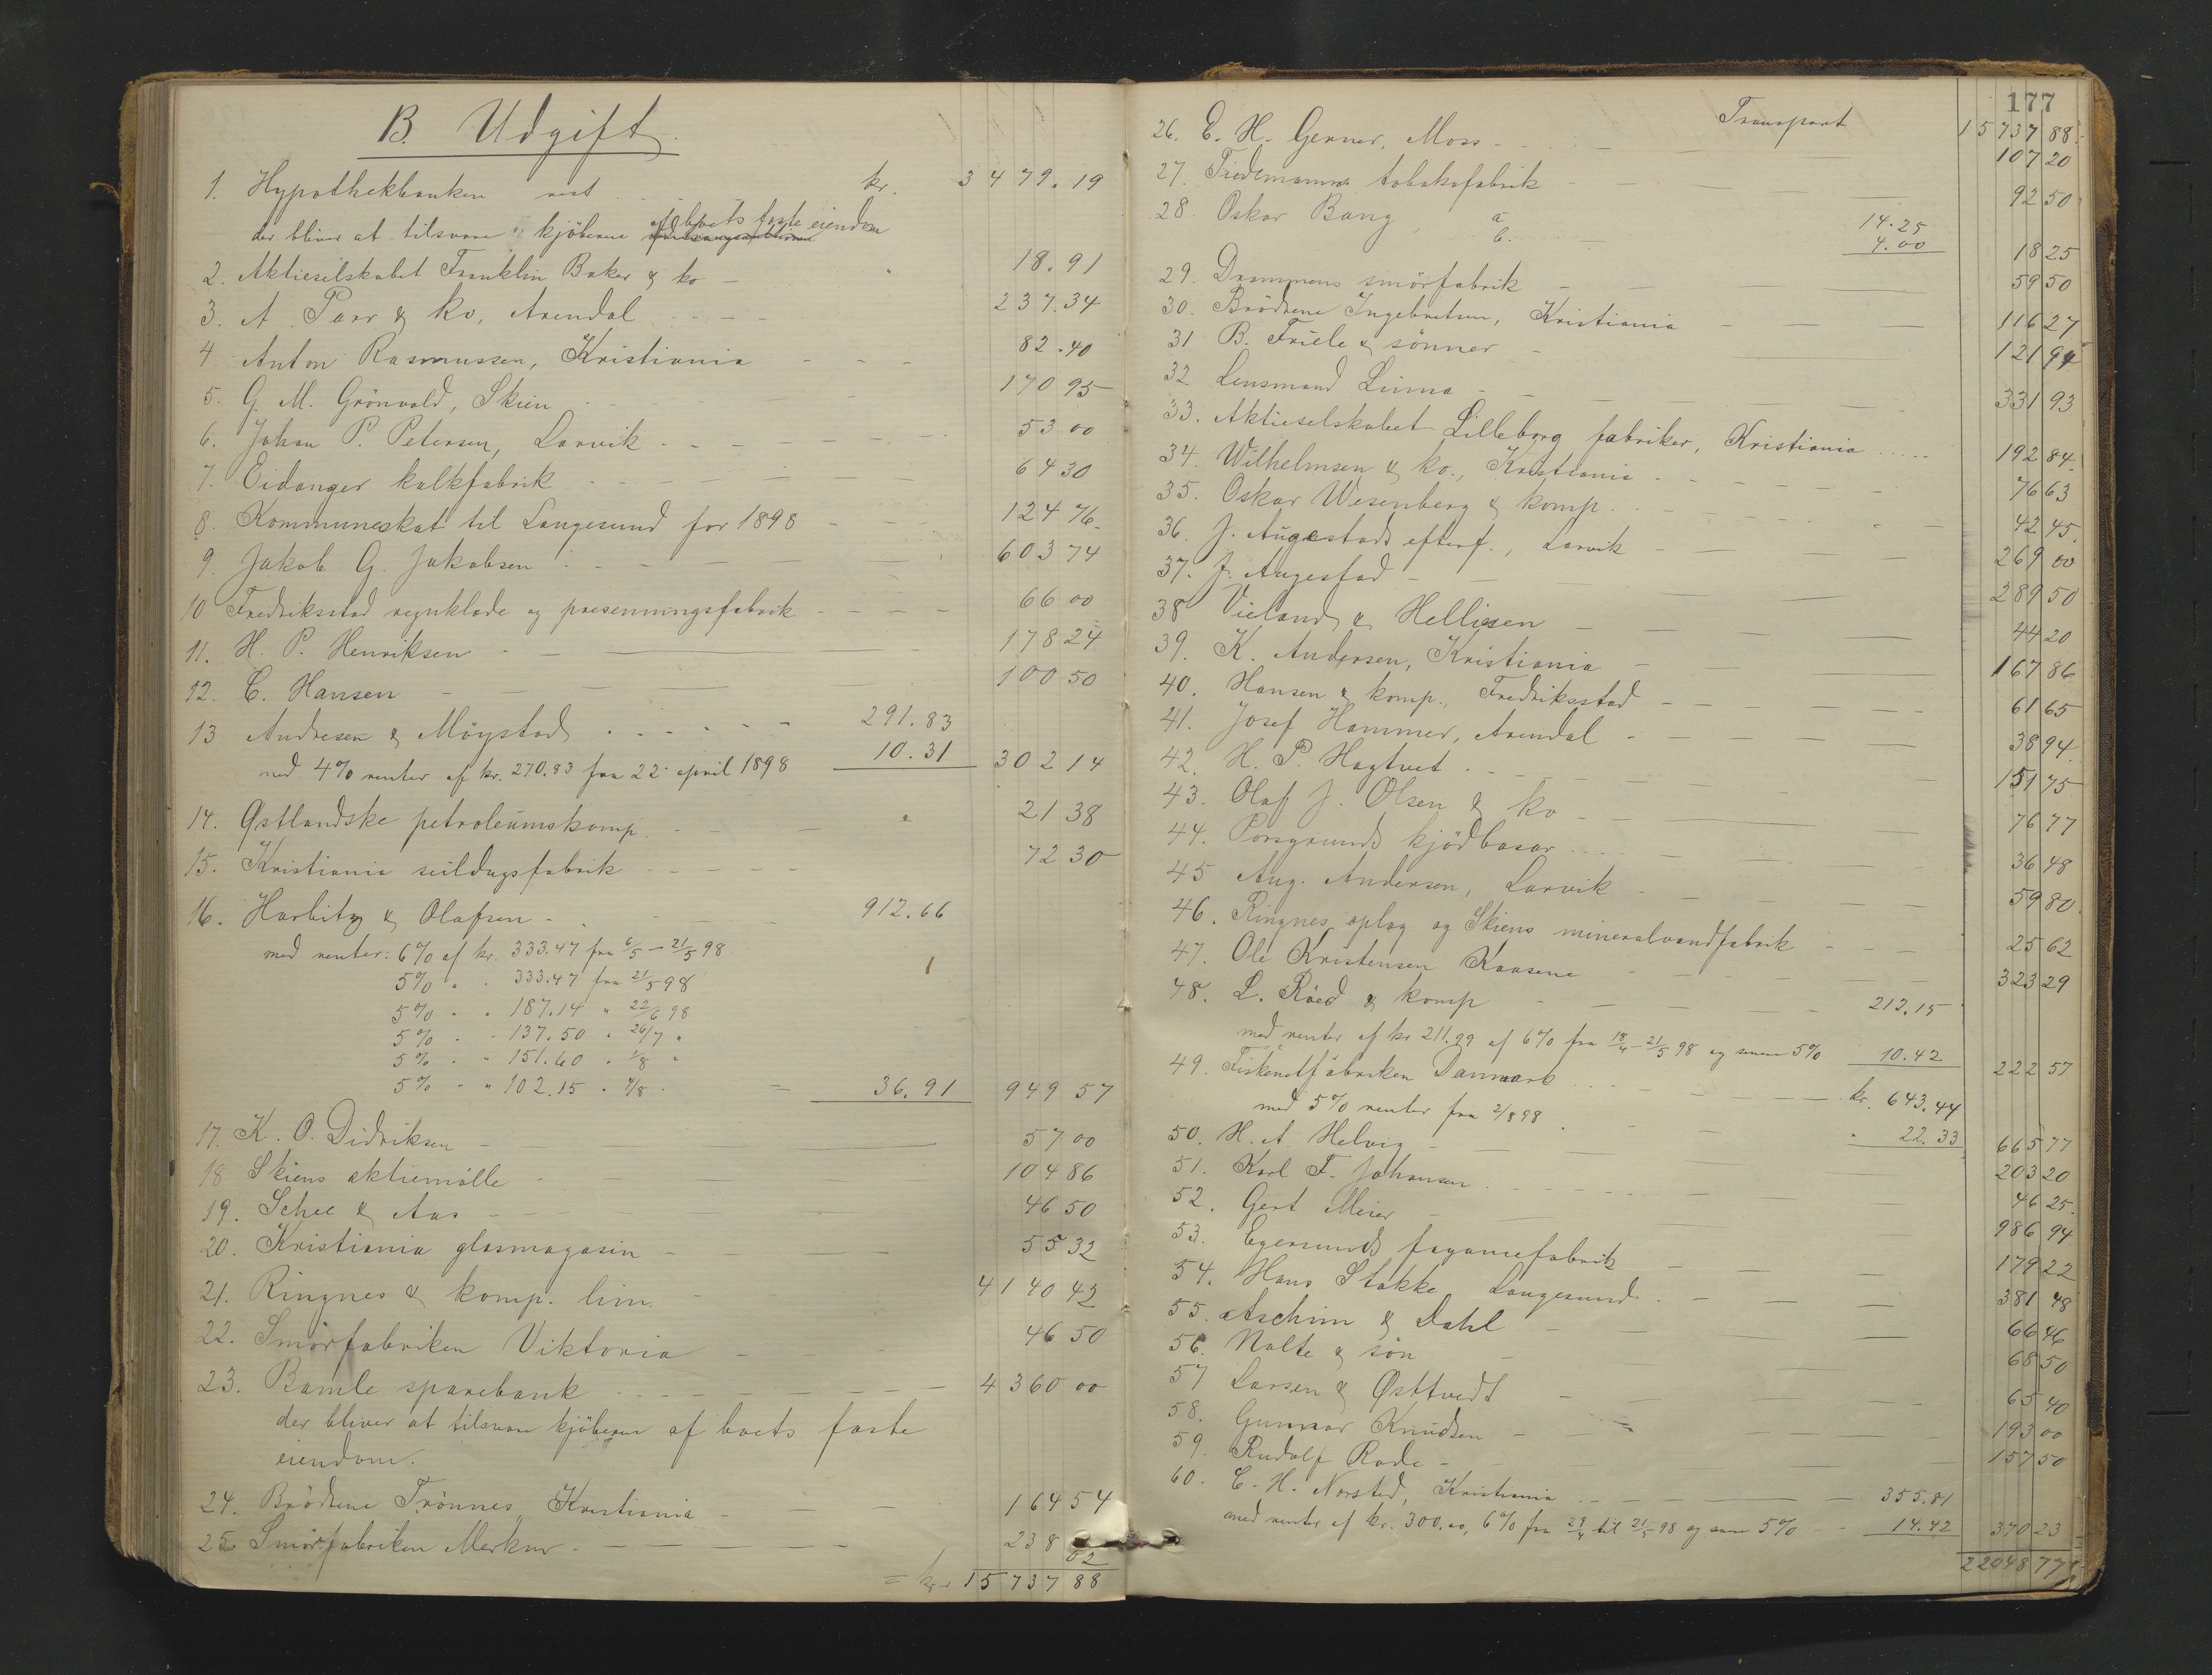 B. Udgift.
1. Hypothekbanken rest kr. 3479.19
der bliver at tilsvare kjöberne af boets faste eiendom
2. Aktieselskabet Franklin Baker & ko - " 18.91
3. A. Parr & ko, Arendal 237.34
4. Anton Rasmussen, Kristiania 82.40
5. G. M. Grönvold, Skien 170 95
6. Johan P. Petersen, Larvik 53 00
7. Eidanger kalkfabrik 64 30
8. Kommuneskat til Langesund for 1898 124 76
9. Jakob G. Jakobsen 603 74
10 Fredriksstad regnklæde og presenningsfabrik 66 00
11. H. P. Henriksen 178 24
12. C. Hansen 100 50
13 Andresen & Möystad 291.83
med 4% renter af kr. 270.83 fra 22. april 1898 10.31 302 14
14. Østlandske petroleumskomp. 21 38
15. Kristiania seildugsfabrik 72 30
16. Harbitz & Olafsen 912.66
med renter: 6% af kr. 333.47 fra 6/5 - 21/5 98
5% " " 333.47 fra 21/5 98
5% " " 187.14 " 22/6 98
5% " " 137.50 " 26/7 "
5% " " 151.60 " 1/8 "
5% " " 102.15 " 4/8 " = 36.91 949 57
17. K. O. Didriksen 57 00
18 Skiens aktiemölle 104 86
19. Schee & Aas 46 50
20. Kristiania glasmagasin 55 32
21. Ringnes & komp. lim. 4140 42
22. Smörfabriken Viktoria 46 50
23. Bamle sparebank 4360 00
der bliver at tilsvare kjöberen af boets faste
eiendom.
24. Brödrene Trönnes, Kristiania 164 54
25 Smörfabriken Merkur 238 02
= kr. 15737 88
177
Transport 15737 88
26. E. H. Gerner, Moss 107 20
27. Tiedemanns tobaksfabrik 92 50
28. Oskar Bang a 14.25
b. 4.00 18 25
29. Drammens smörfabrik 59 50
30. Brödrene Ingebretsen, Kristiania 116 27
31 B. Friele & sönner 121 94
32 Lensmand Linna 331 93
33. Aktieselskabet Lilleborg fabriker, Kristiania 192 84
34. Wilhelmsen & ko., Kristiania 76 63
35. Oskar Wesenberg & komp. 42 45
36. J. Augestads efterf., Larvik 269 00
37. J. Augestad 289 50
38 Vieland & Hellisen 44 20
39. K. Andersen, Kristiania 167 86
40. Hansen & komp., Fredriksstad 61 65
41. Josef Hammer, Arendal 38 94
42. H. P. Hagtvet 151 75
43. Olaf J. Olsen & ko 76 77
44. Porsgrunds kjödbasar 36 48
45 Aug. Andersen, Larvik 59 80
46. Ringnes oplag og Skiens mineralvandfabrik 25 62
47. Ole Kristensen Kaasene 323 29
48. L. Röed & komp 212.15
med renter af kr 211.99 af 6% fra 18/4 - 21/5 98 og senere 5% 10.42 222 57
49. Fiskenetfabriken Danmark kr. 643.44
med 5% renter fra 2/8 98 " 22.33 665 77
50. H. A. Helvig 203 20
51. Karl F. Johansen 46 25
52. Gert Meier 986 94
53. Egersunds fayancefabrik 179 22
54. Hans Stokke Langesund 381 48
55. Aschim & Dahl 66 46
56. Nalte & sön 68 50
57 Larsen & Østtvedt 65 40
58. Gunnar Knudsen 193 00
59. Rudolf Rode 157 50
60. C. H. Norsted, Kristiania 355.81
med renter af kr. 300.00, 6% fra 29/4 til 21/5 98 og senere 5% 14.42 370 23
22048 77